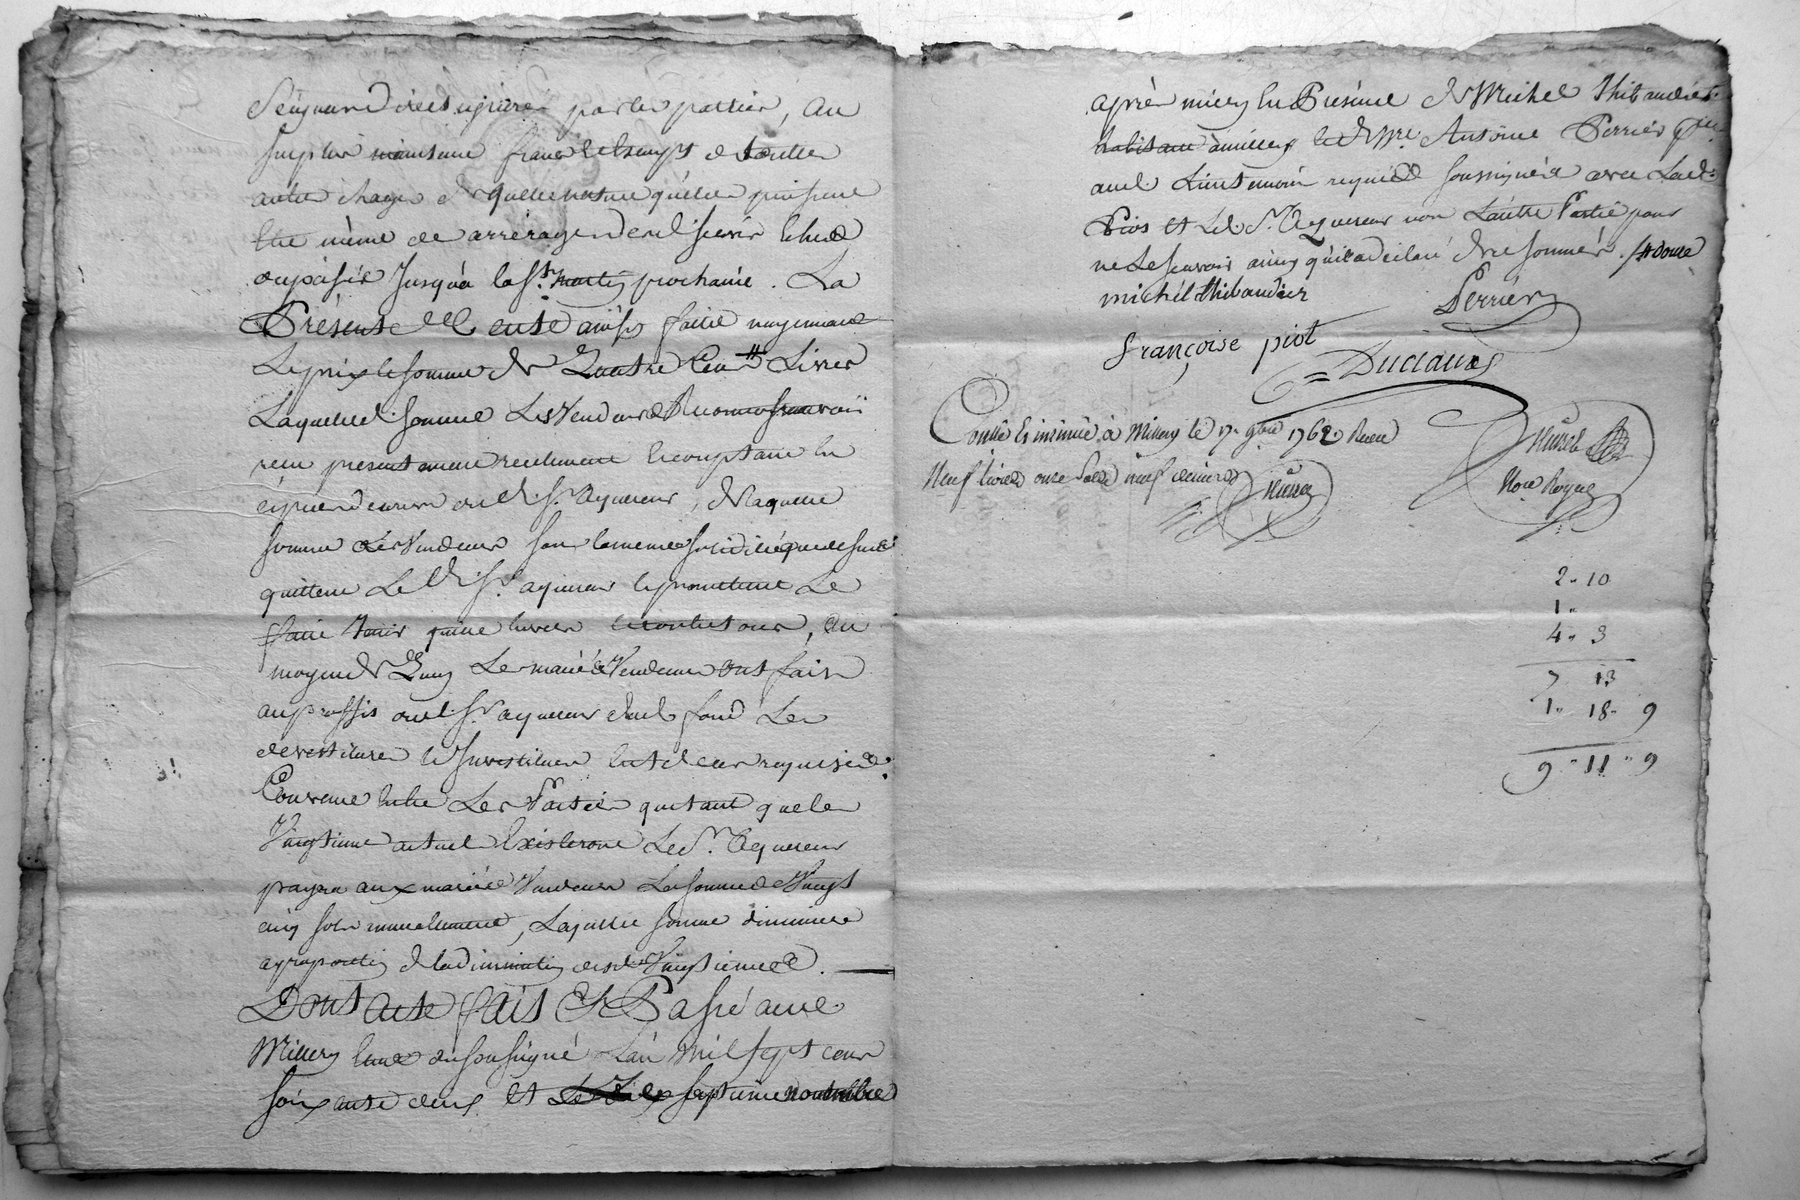 par les parties, au
surplus franc et exempt de toutes
autres charges de quelle nature qu'elles puissent
être même de arrérages dud servis
jusqu'à la St. martin prochaine. La
Présente Vente ainsi faite moyennant
Le prix et somme de Quatre Cent Livres
Laquelle d. somme Les Vendeurs
reçu présentement réellement et comptant en
espèces de cours dud. Sr. aquereur, de laquelle
somme Les Vendeurs sous la même solidité que dessus
quittent Le d. Sr. aquereur et promettent Le
faire tenir quitte envers et contre tous, au
moyen de quoy Les mariés Vendeurs ont fait
au proffit dud Sr aquereur dud. fond Les
devestitures et Investitures en tel cas requises.
Convenu entre Les Parties que tant que les
Vingtieme actuel Existeront Led. Sr. Aquereur
payera aux mariés Vendeurs La somme de Vingt
cinq sols annuellement, Laquelle somme diminuera
a proportion de la diminution desd. Vingtiemes.
Dont acte fait & Passé aud.
Millery Etude du soussigné L'an mil sept cent
soixante deux et Le dix septieme novembre
après midy En Présence de Michel Thibaudier
habitant à millery et de Mre. Antoine Perrier
aud. Lieu temoin requis soussignés avec Lad.
Piot et Led. Sr. Aquereur non L'autre Partie pour
ne Le scavoir ainsy qu'il a déclaré de ce sommé.
michel thibaudier Perrier
françoise piot
Duclaux
Controllé et insinué à Millery le 17. 9bre 1762. Receu
Neuf livres onze sols neuf deniers
Nore Royal
2 " 10
1 "
4 " 3
7 13
1 " 18 " 9
9 " 11 " 9